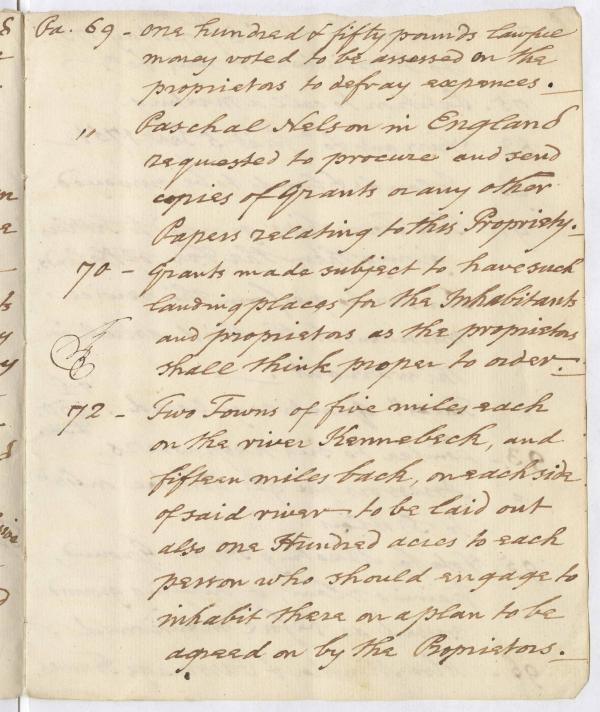 Pa. 69 - one hundred & fifty pounds lawful
money voted to be assessed on the
proprietors to defray expences.
" Paschal Nelson in England
requested to procure and send
copies of Grants or any other
Papers relating to this Propriety.
70 - Grants made subject to have such
landing places for the Inhabitants
and proprietors as the proprietors
shall think proper to order.
72 - Two Towns of five miles each
on the river Kennebeck, and
fifteen miles back, on each side
of said river to be laid out
also one Hundred acres to each
person who should engage to
inhabit there on a plan to be
agreed on by the Proprietors.